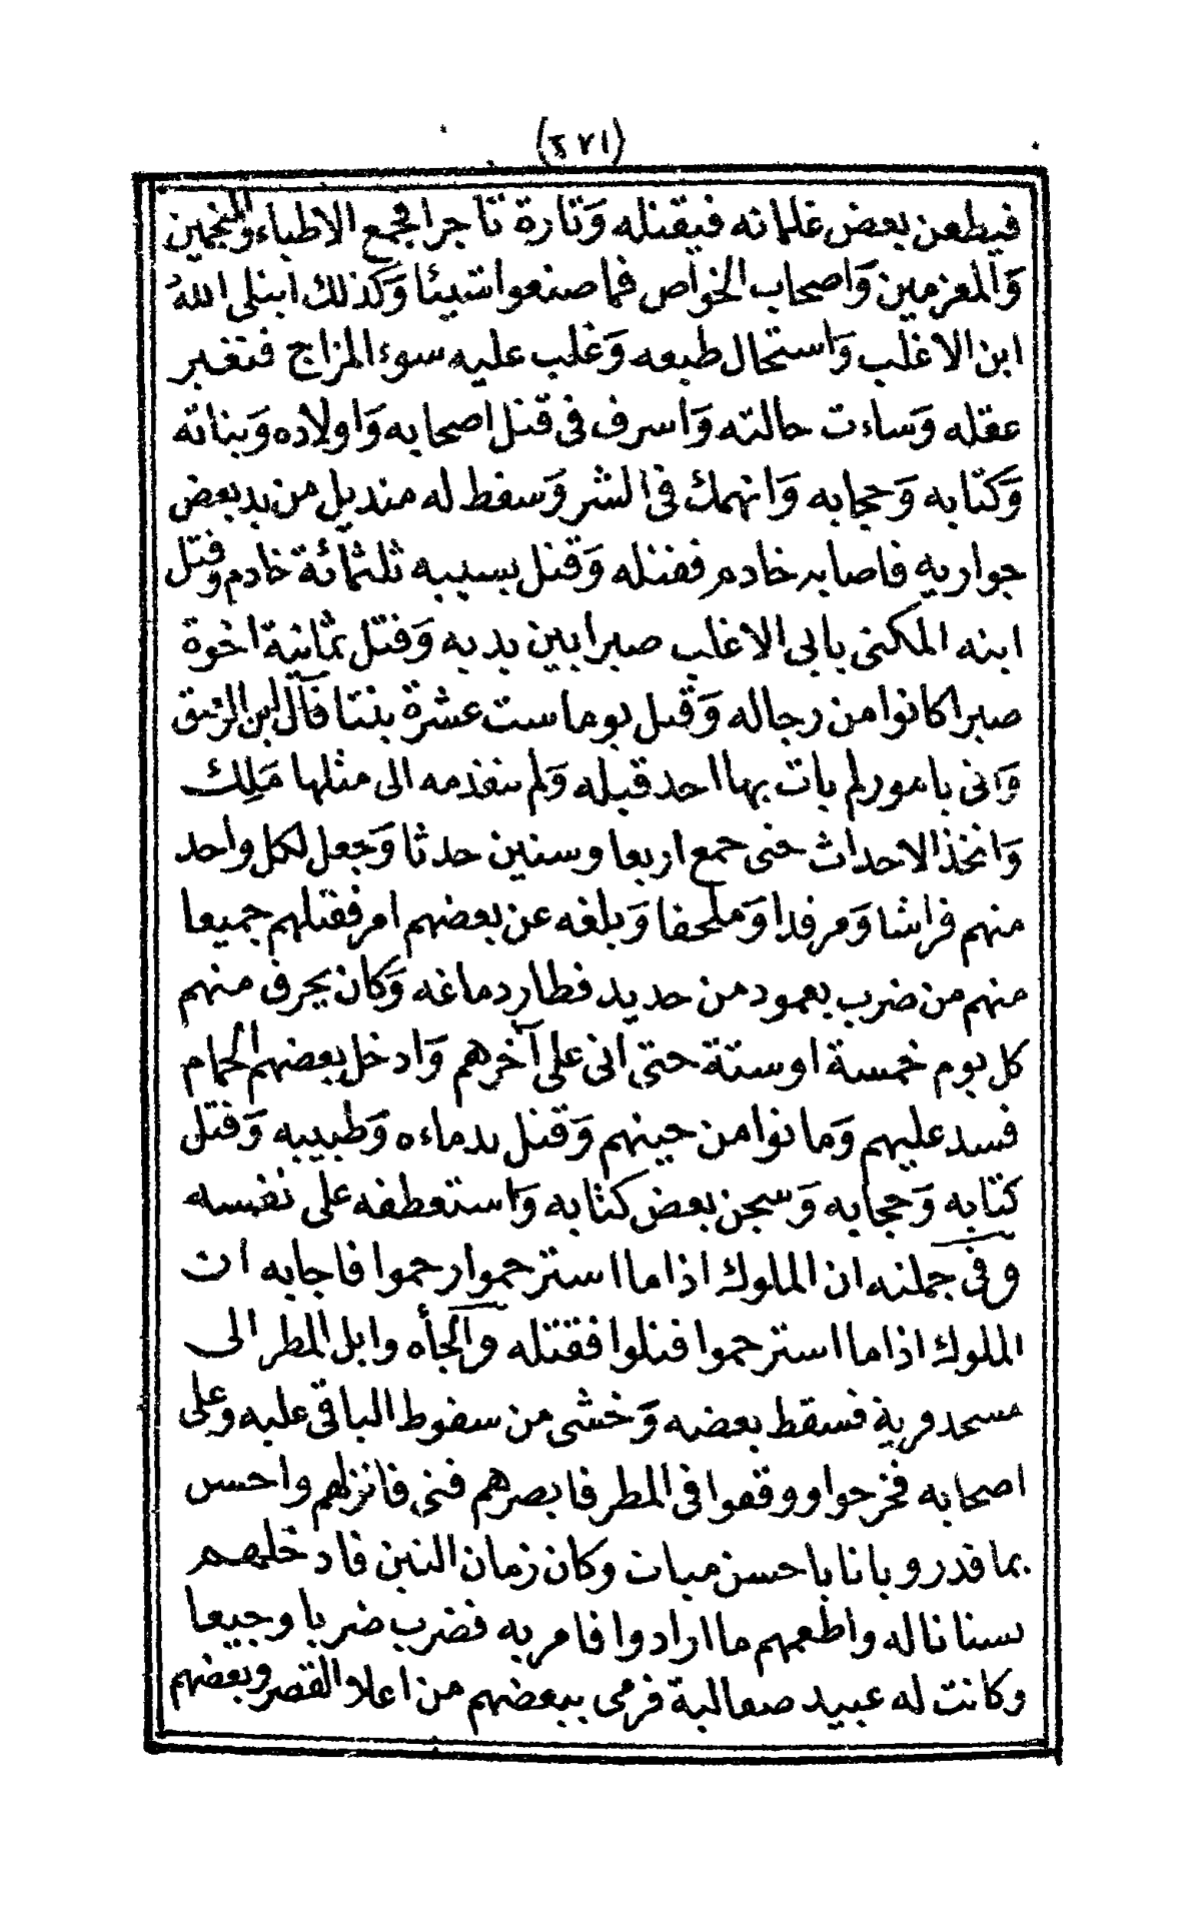 (٢٧١)
فيطعن بعض غلمانه فيقتله وتارة تاجرا فجمع الاطباء والمنجمين
والمعزمين واصحاب الخواص فما صنعوا شيئا وكذلك ابتلى الله
ابن الاغلب واستحال طبعه وغلب عليه سوء المزاج فتغير
عقله وساءت حالته واسرف فى قتل اصحابه واولاده وبناته
وكتابه وحجابه وانهمك فى الشر وسقط له منديل من يد بعض
جواريه فاصابه خادم فقتله وقتل بسببه ثلثمائة خادم وقتل
ابنه المكنى بابى الاغلب صبرا بين يديه وقتل ثمانية اخوة
صبرا كانوا من رجاله وقتل يوما ست عشرة بنتا قال ابن الرشيق
واتى بامور لم يات بها احد قبله ولم يتقدمه الى مثلها ملك
واتخذ الاحداث حتى جمع اربعا وستين حدثا وجعل لكل واحد
منهم فراشا ومرقدا وملحفا وبلغه عن بعضهم امر فقتلهم جميعا
منهم من ضرب بعمود من حديد فطار دماغه وكان يحرق منهم
كل يوم خمسة او ستة حتى اتى على آخرهم وادخل بعضهم الحمام
فسد عليهم وماتوا من حينهم وقتل ندماءه وطبيبه وقتل
كتابه وحجابه وسجن بعض كتابه واستعطفه على نفسه
وفى جملته ان الملوك اذا ما استرحموا رحموا فاجابه ان
الملوك اذا ما استرحموا قتلوا فقتله والجأه وابل المطر الى
مسجد قرية فسقط بعضه وخشى من سقوط الباقى عليه وعلى
اصحابه فخرجوا ووقفوا فى المطر فابصرهم فتى فانزلهم واحسن
بما قدر وباتا باحسن مبات وكان زمان التين فادخلهم
بستانا له واطعمهم ما ارادوا فامر به فضرب ضربا وجيعا
وكانت له عبيد صقالبة فرمى ببعضهم من اعلا القصر وبعضهم